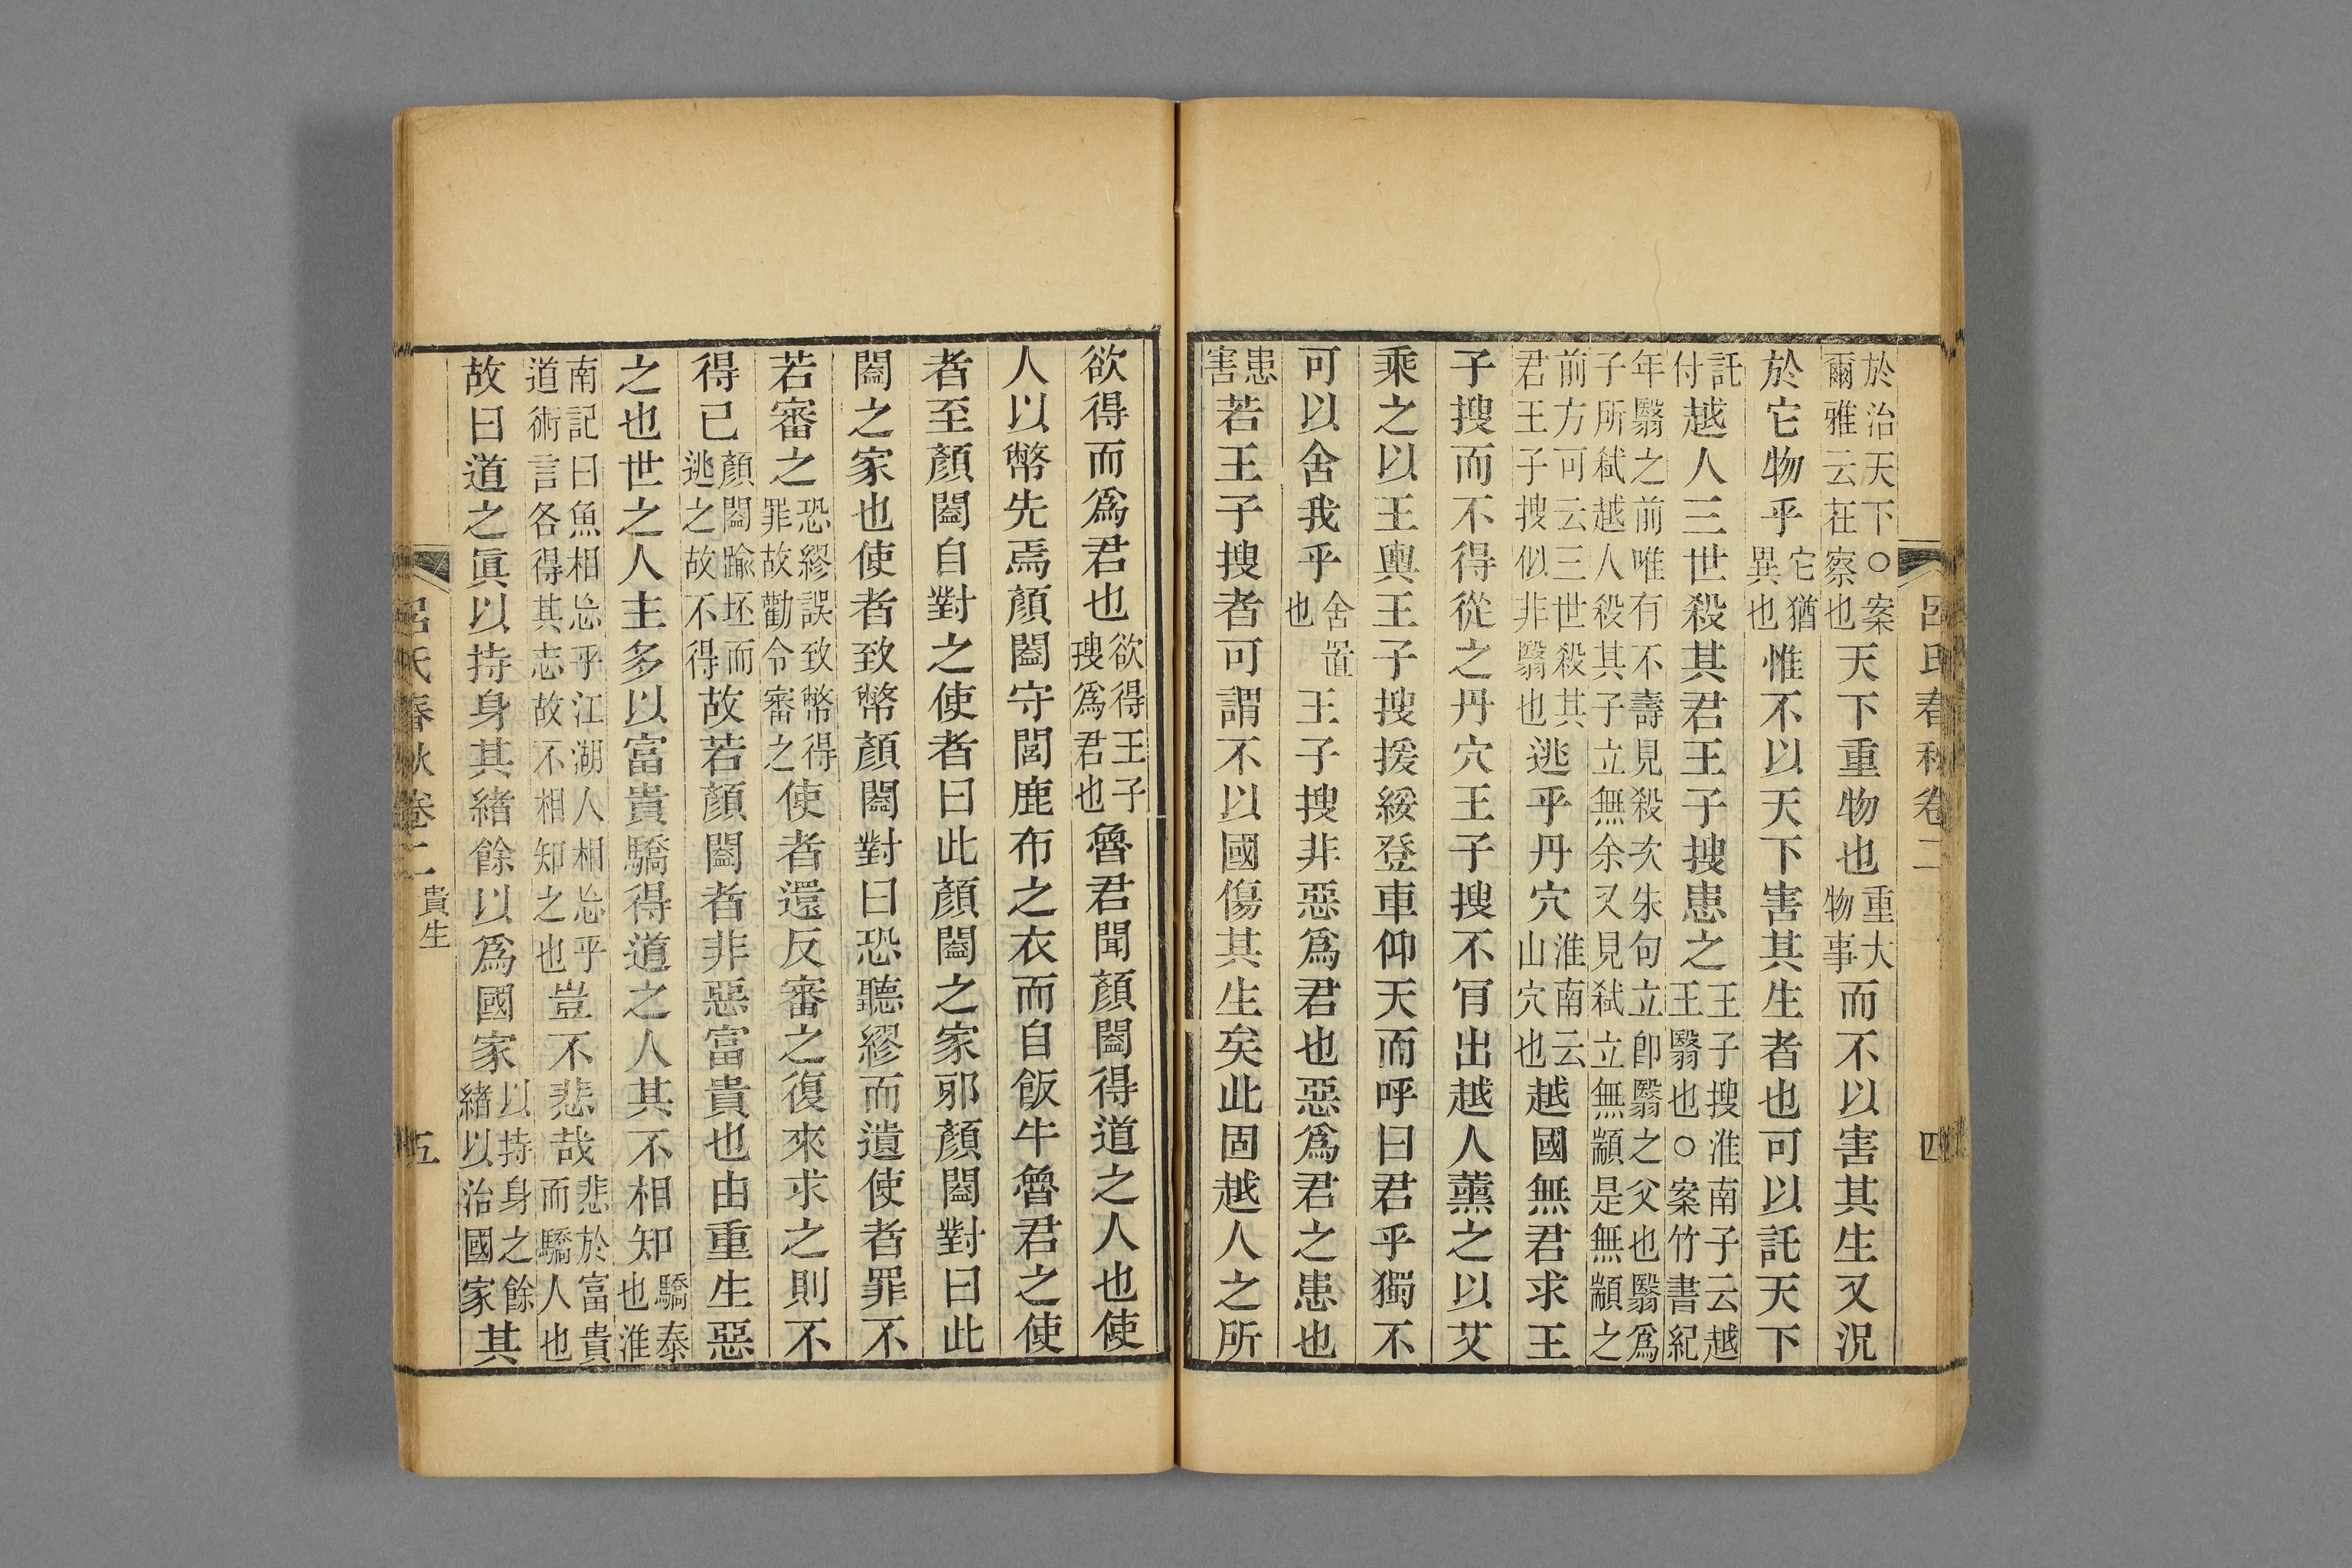 呂氏春秋卷二 四
於治天下○案爾雅云在察也天下重物也重大物事而不以害其生又況
於它物乎它猶異也惟不以天下害其生者也可以託天下
託付越人三世殺其君王子搜患之王子搜淮南子云越王翳也○案竹書紀
年翳之前唯有不壽見殺次朱句立卽翳之父也翳爲子所弒越人殺其子立無余又見弒立無顓是無顓之
前方可云三世殺其君王子搜似非翳也逃乎丹穴淮南云山穴也越國無君求王
子搜而不得從之丹穴王子搜不肎出越人薰之以艾
乘之以王輿王子搜援綏登車仰天而呼曰君乎獨不
可以舍我乎舍置也王子搜非惡爲君也惡爲君之患也
患害若王子搜者可謂不以國傷其生矣此固越人之所
欲得而爲君也欲得王子搜爲君也魯君聞顏闔得道之人也使
人以幣先焉顏闔守閭鹿布之衣而自飯牛魯君之使
者至顏闔自對之使者曰此顏闔之家邪顏闔對曰此
闔之家也使者致幣顏闔對曰恐聽繆而遺使者罪不
若審之恐繆誤致幣得罪故勸令審之使者還反審之復來求之則不
得已顏闔踰坯而逃之故不得故若顏闔者非惡富貴也由重生惡
之也世之人主多以富貴驕得道之人其不相知驕泰也淮
南記曰魚相忘乎江湖人相忘乎道術言各得其志故不相知之也豈不悲哉悲於富貴而驕人也
故曰道之眞以持身其緒餘以爲國家以持身之餘緒以治國家其
呂氏春秋卷二 貴生 五